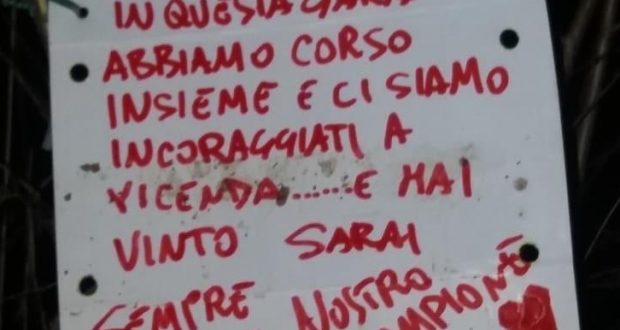 IN QUESTA GARA
ABBIAMO CORSO
INSIEME E CI SIAMO
INCORAGGIATI A
VICENDA......E HAI
VINTO SARAI
SEMPRE NOSTRO
CAMPIONE